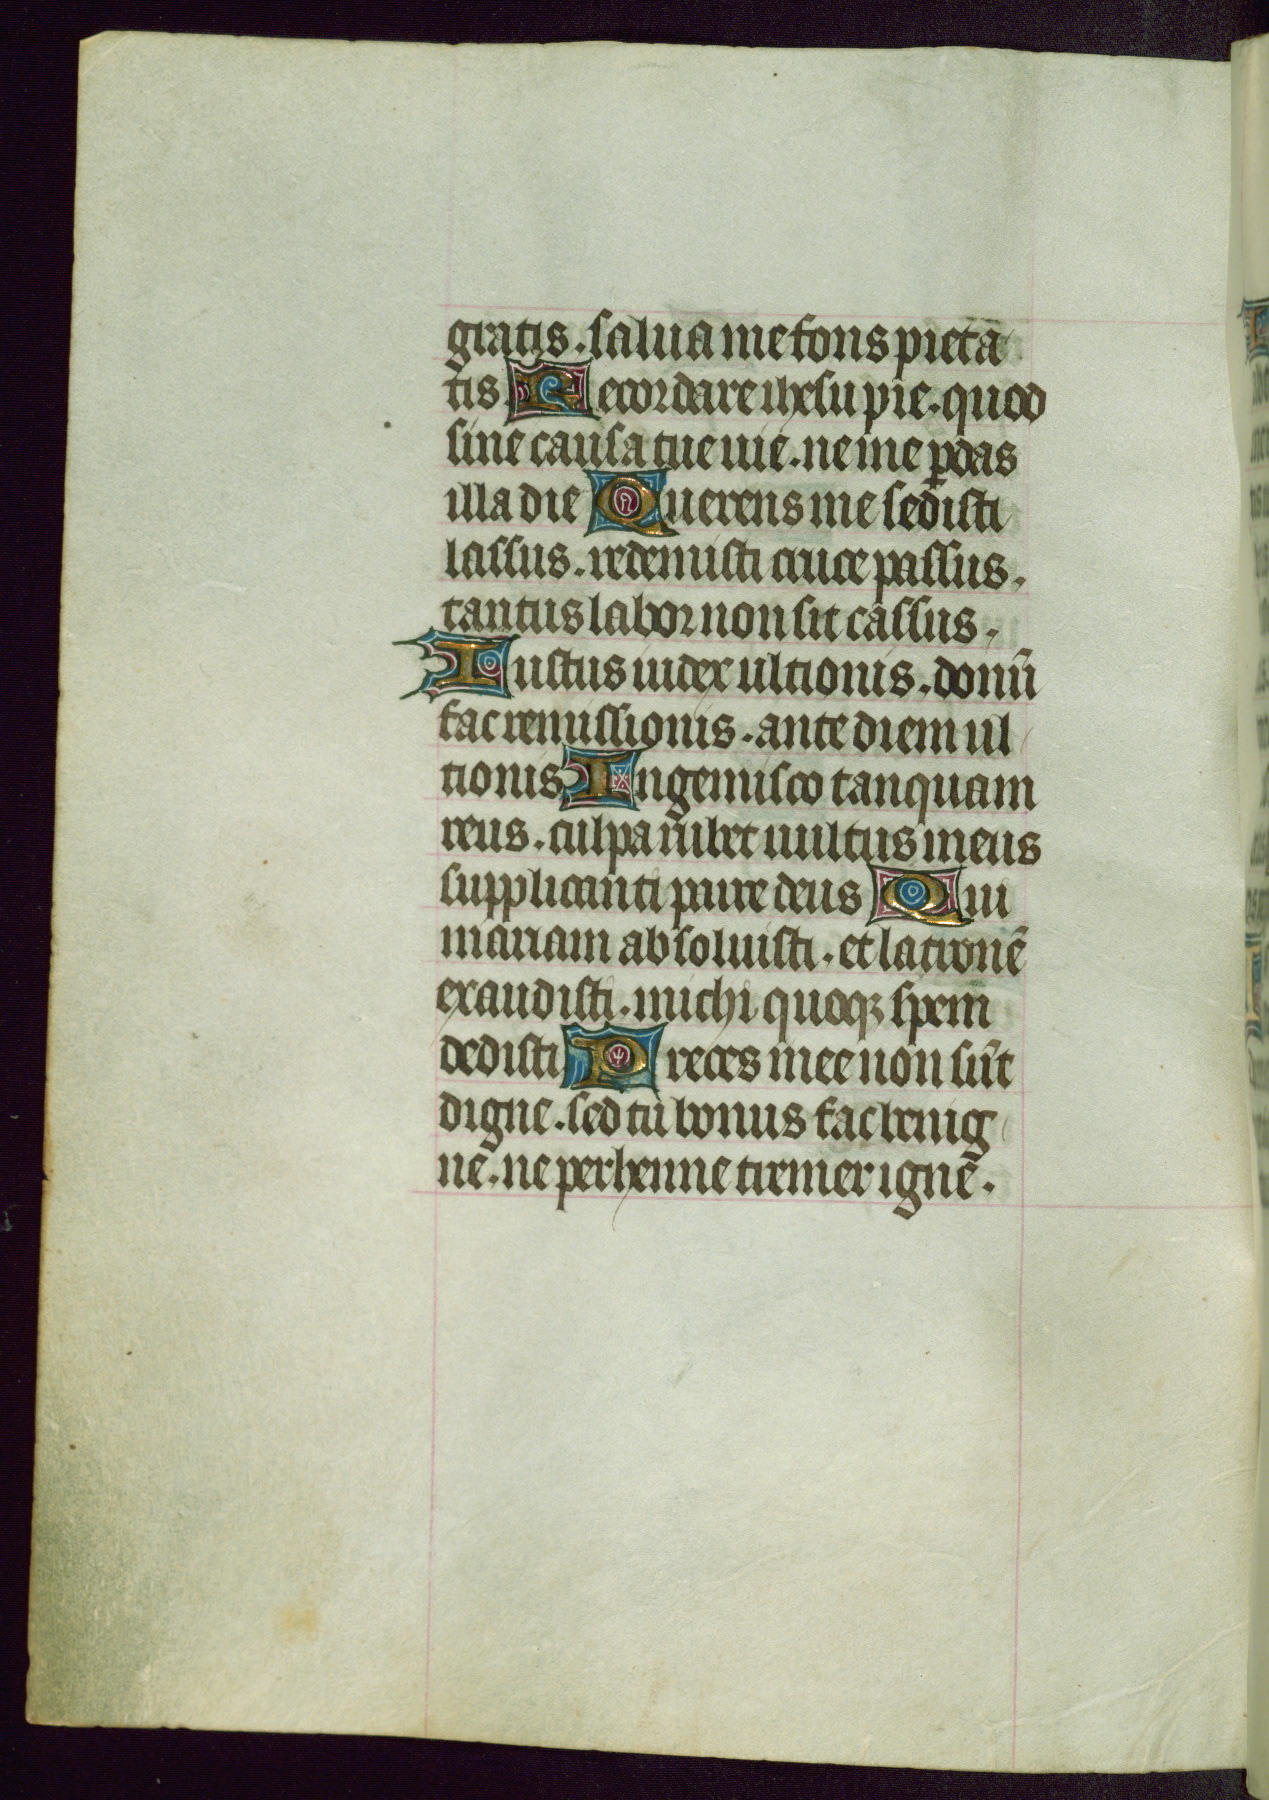 gratis. salua me fons pieta
tis Recordare ihesu pie. quod
sine causa tue uie. ne me ꝑdas
illa die Querens me sedisti
lassus. redemisti cruce passus.
tantus labor non sit cassus.
Iustus iudex ultionis. donū
fac remissionis. ante diem ul
tionis Ingemisco tanquam
reus. culpa rubet uultus meus
supplicanti parce deus Qui
mariam absoluisti. et latronē
exaudisti. michi quoqꝫ spem
dedisti Preces mee non sūt
digne. sed tu bonus fac benig
ne. ne perhenne cremer ignē.